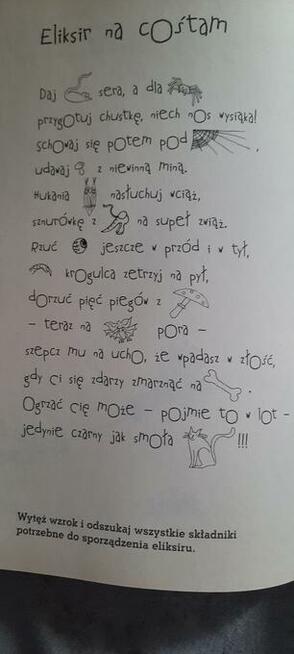 Eliksir na cOśtam
Daj sera, a dla
przygOtuj chustkę, niech nOs wysiąka!
schOwaj się pOtem pOd ,
udawaj z niewinną miną.
Hukania nasłuchuj wciąż,
sznurówkę z na supeł zwiąż.
Rzuć jeszcze w przód i w tył,
krOgulca zetrzyj na pył,
dOrzuć pięć piegów z
– teraz na pOra –
szepcz mu na uchO, że wpadasz w złOść,
gdy ci się zdarzy zmarznąć na .
Ogrzać cię mOże – pOjmie tO w lOt –
jedynie czarny jak smOła !!!
Wytęż wzrok i odszukaj wszystkie składniki
potrzebne do sporządzenia eliksiru.